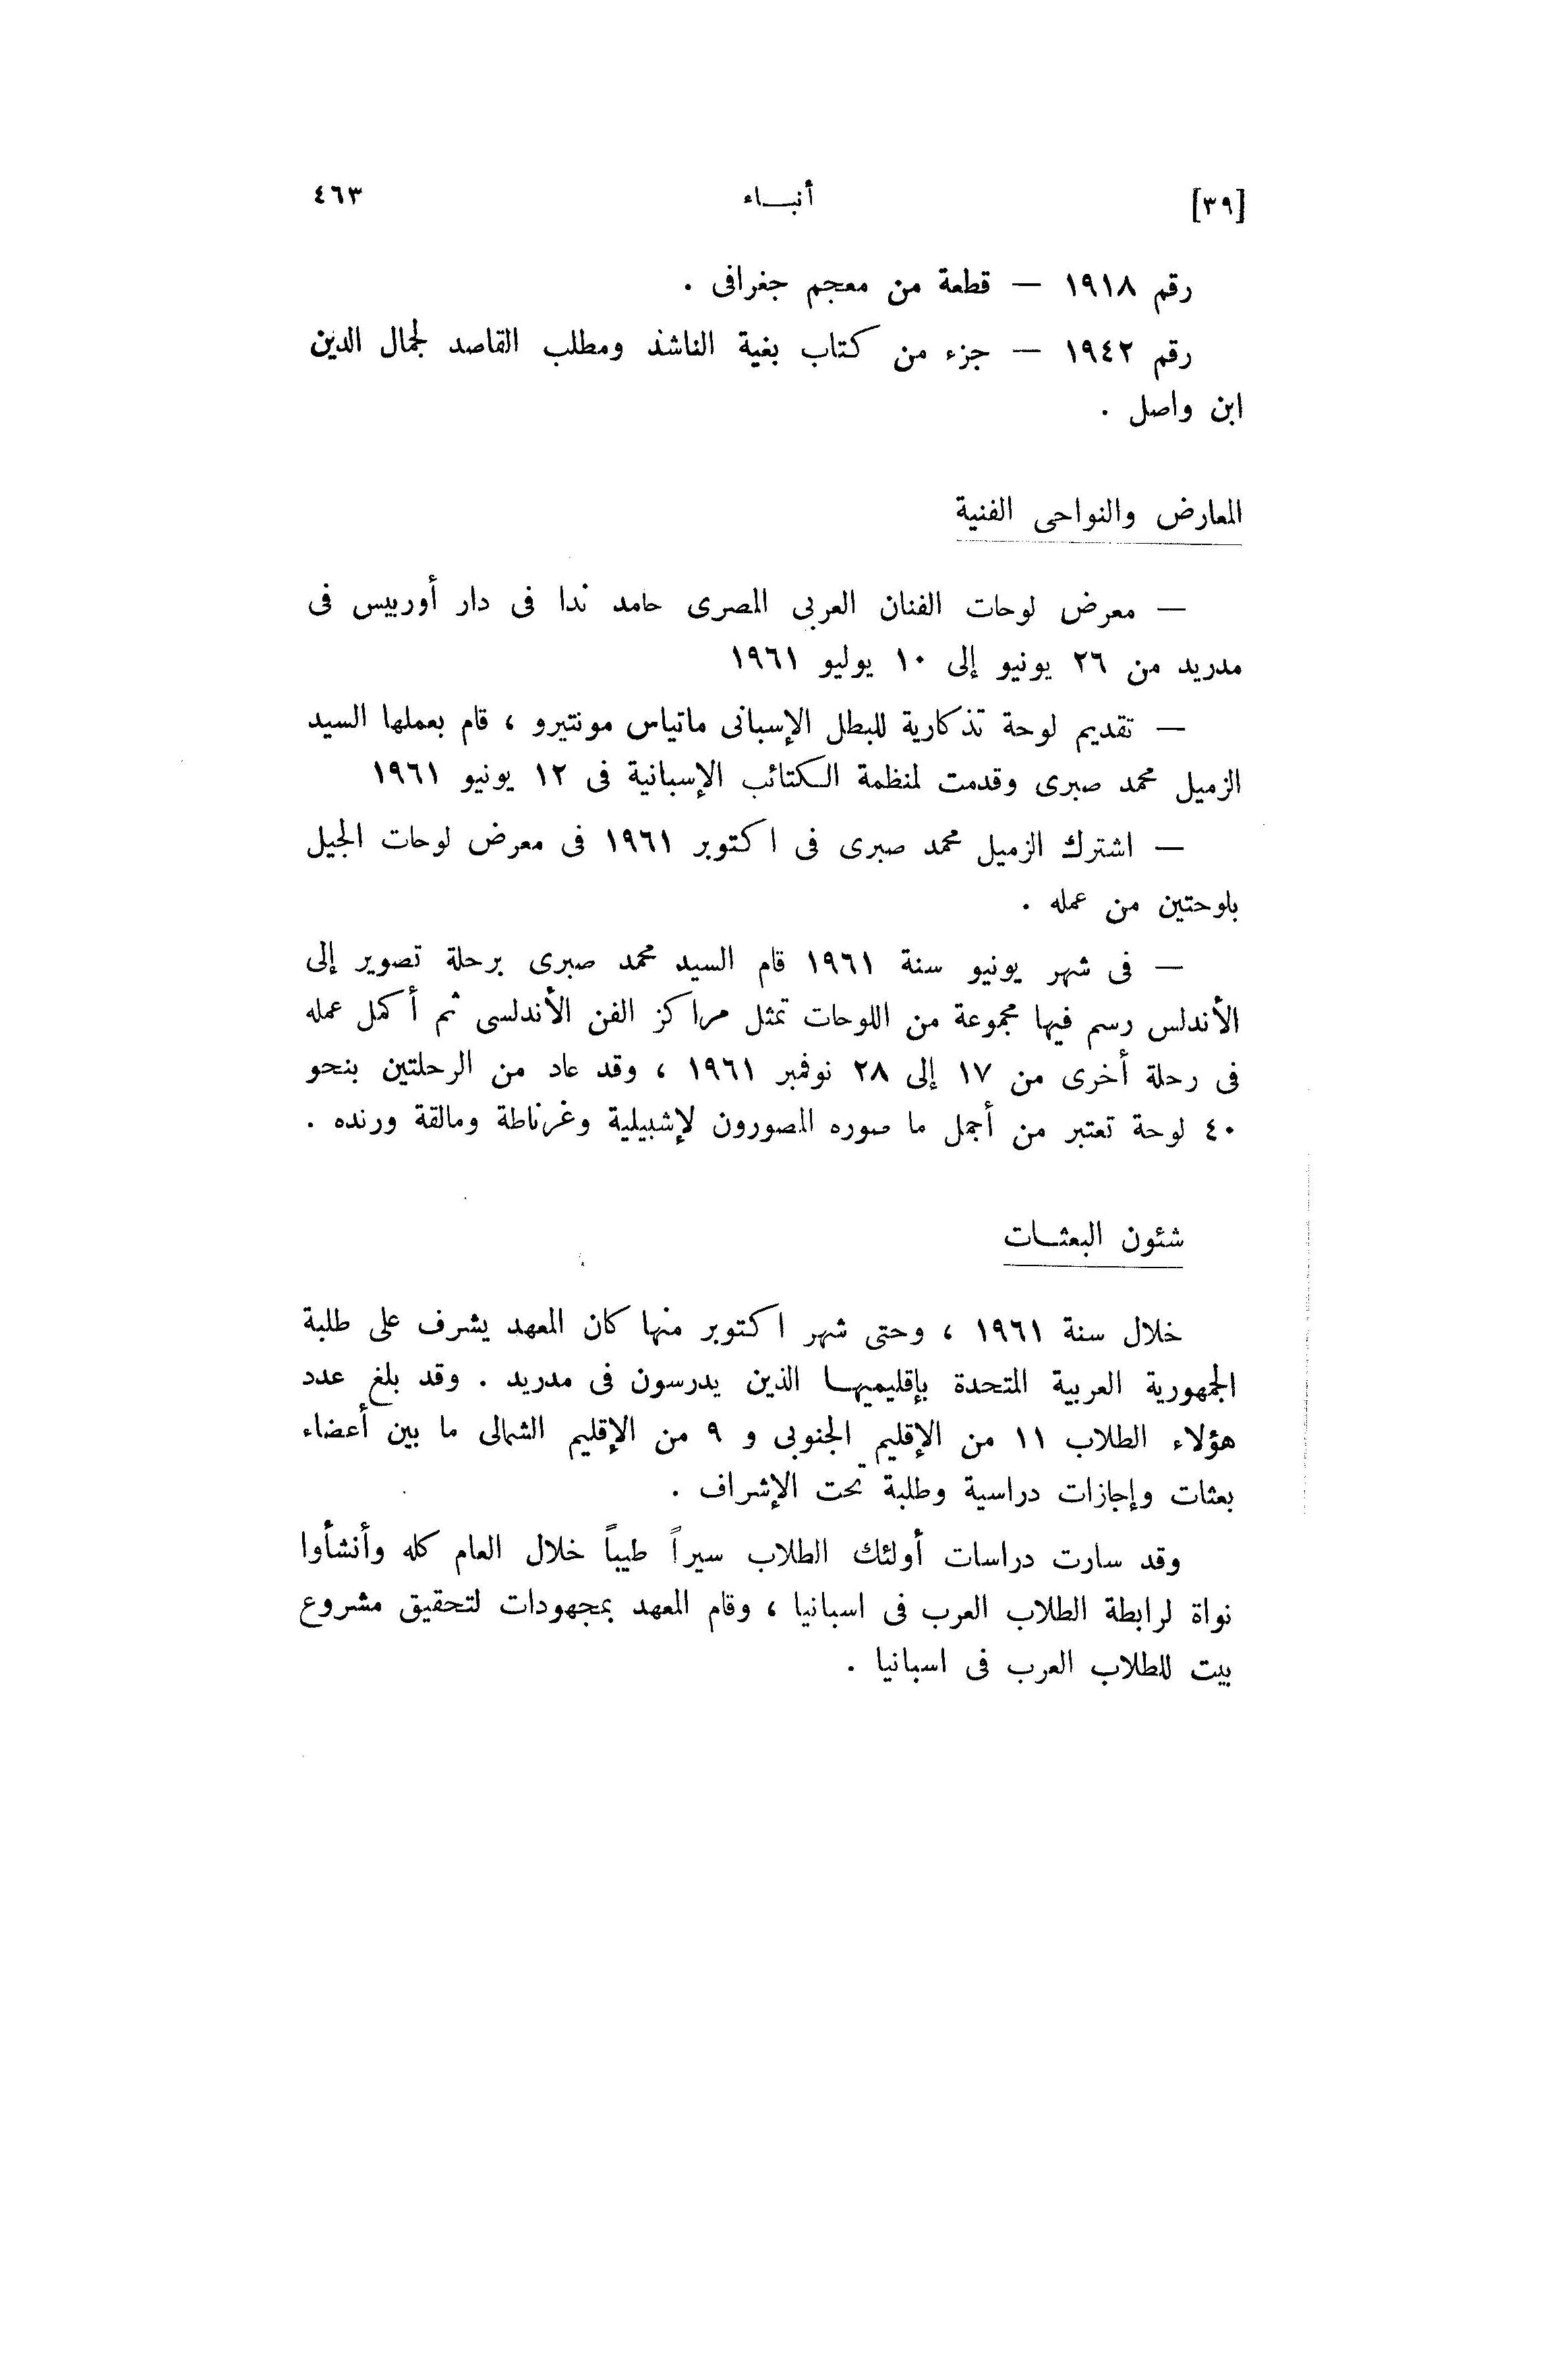 [٣٩] أنبـــاء ٤٦٣
رقم ١٩١٨ — قطعة من معجم جغرافى .
رقم ١٩٤٢ — جزء من كتاب بغية الناشد ومطلب القاصد لجمال الدين
ابن واصل .
المعارض والنواحى الفنية
— معرض لوحات الفنان العربى المصرى حامد ندا فى دار أوربيس فى
مدريد من ٢٦ يونيو إلى ١٠ يوليو ١٩٦١
— تقديم لوحة تذكارية للبطل الإسبانى ماتياس مونتيرو ، قام بعملها السيد
الزميل محمد صبرى وقدمت لمنظمة الكتائب الإسبانية فى ١٢ يونيو ١٩٦١
— اشترك الزميل محمد صبرى فى اكتوبر ١٩٦١ فى معرض لوحات الجيل
بلوحتين من عمله .
— فى شهر يونيو سنة ١٩٦١ قام السيد محمد صبرى برحلة تصوير إلى
الأندلس رسم فيها مجموعة من اللوحات تمثل مراكز الفن الأندلسى ثم أكمل عمله
فى رحلة أخرى من ١٧ إلى ٢٨ نوفمبر ١٩٦١ ، وقد عاد من الرحلتين بنحو
٤٠ لوحة تعتبر من أجمل ما صوره المصورون لإشبيلية وغرناطة ومالقة ورنده .
شئون البعثــات
خلال سنة ١٩٦١ ، وحتى شهر اكتوبر منها كان المعهد يشرف على طلبة
الجمهورية العربية المتحدة بإقليميهــا الذين يدرسون فى مدريد . وقد بلغ عدد
هؤلاء الطلاب ١١ من الإقليم الجنوبى و ٩ من الإقليم الشمالى ما بين أعضاء
بعثات وإجازات دراسية وطلبة تحت الإشراف .
وقد سارت دراسات أولئك الطلاب سيراً طيباً خلال العام كله وأنشأوا
نواة لرابطة الطلاب العرب فى اسبانيا ، وقام المعهد بمجهودات لتحقيق مشروع
بيت للطلاب العرب فى اسبانيا .